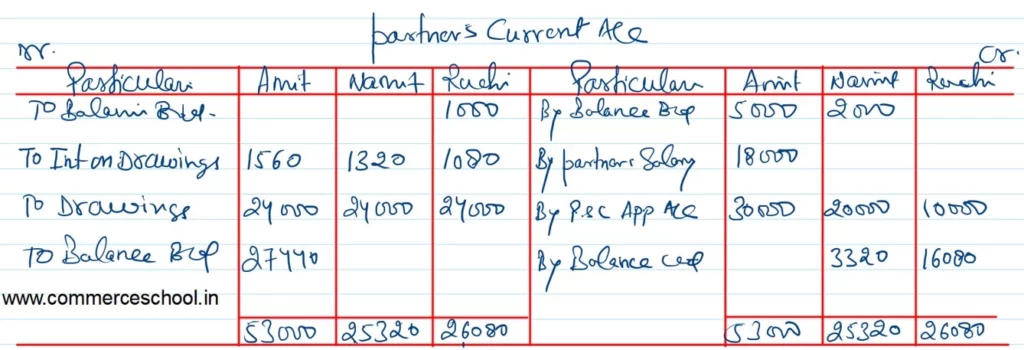 Partners Current A/c
Dr. Cr.
Particulars Amit Namit Ruchi Particulars Amit Namit Ruchi
To Balance B/d. 1000 By Balance B/d 5000 2000
To Int on Drawings 1560 1320 1080 By partners Salary 18000
To Drawings 24000 24000 24000 By P&C App A/c 30000 20000 10000
To Balance B/d 27440 By Balance c/d 3320 16080
www.commerceschool.in
53000 25320 26080 53000 25320 26080